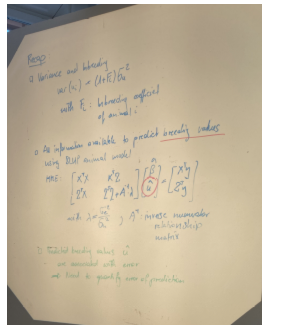 Recap
□ Variance and inbreeding
var(uᵢ) = (1+Fᵢ)σᵤ²
with Fᵢ: inbreeding coefficient
of animal i
□ All information available to predict breeding values
using BLUP animal model
MME: [X'X X'Z; Z'X Z'Z+A⁻¹λ] [β̂; û] = [X'y; Z'y]
with λ = σₑ²/σᵤ², A⁻¹: inverse numerator
relationship
matrix
Predicted breeding values û
are associated with error
need to quantify error of prediction